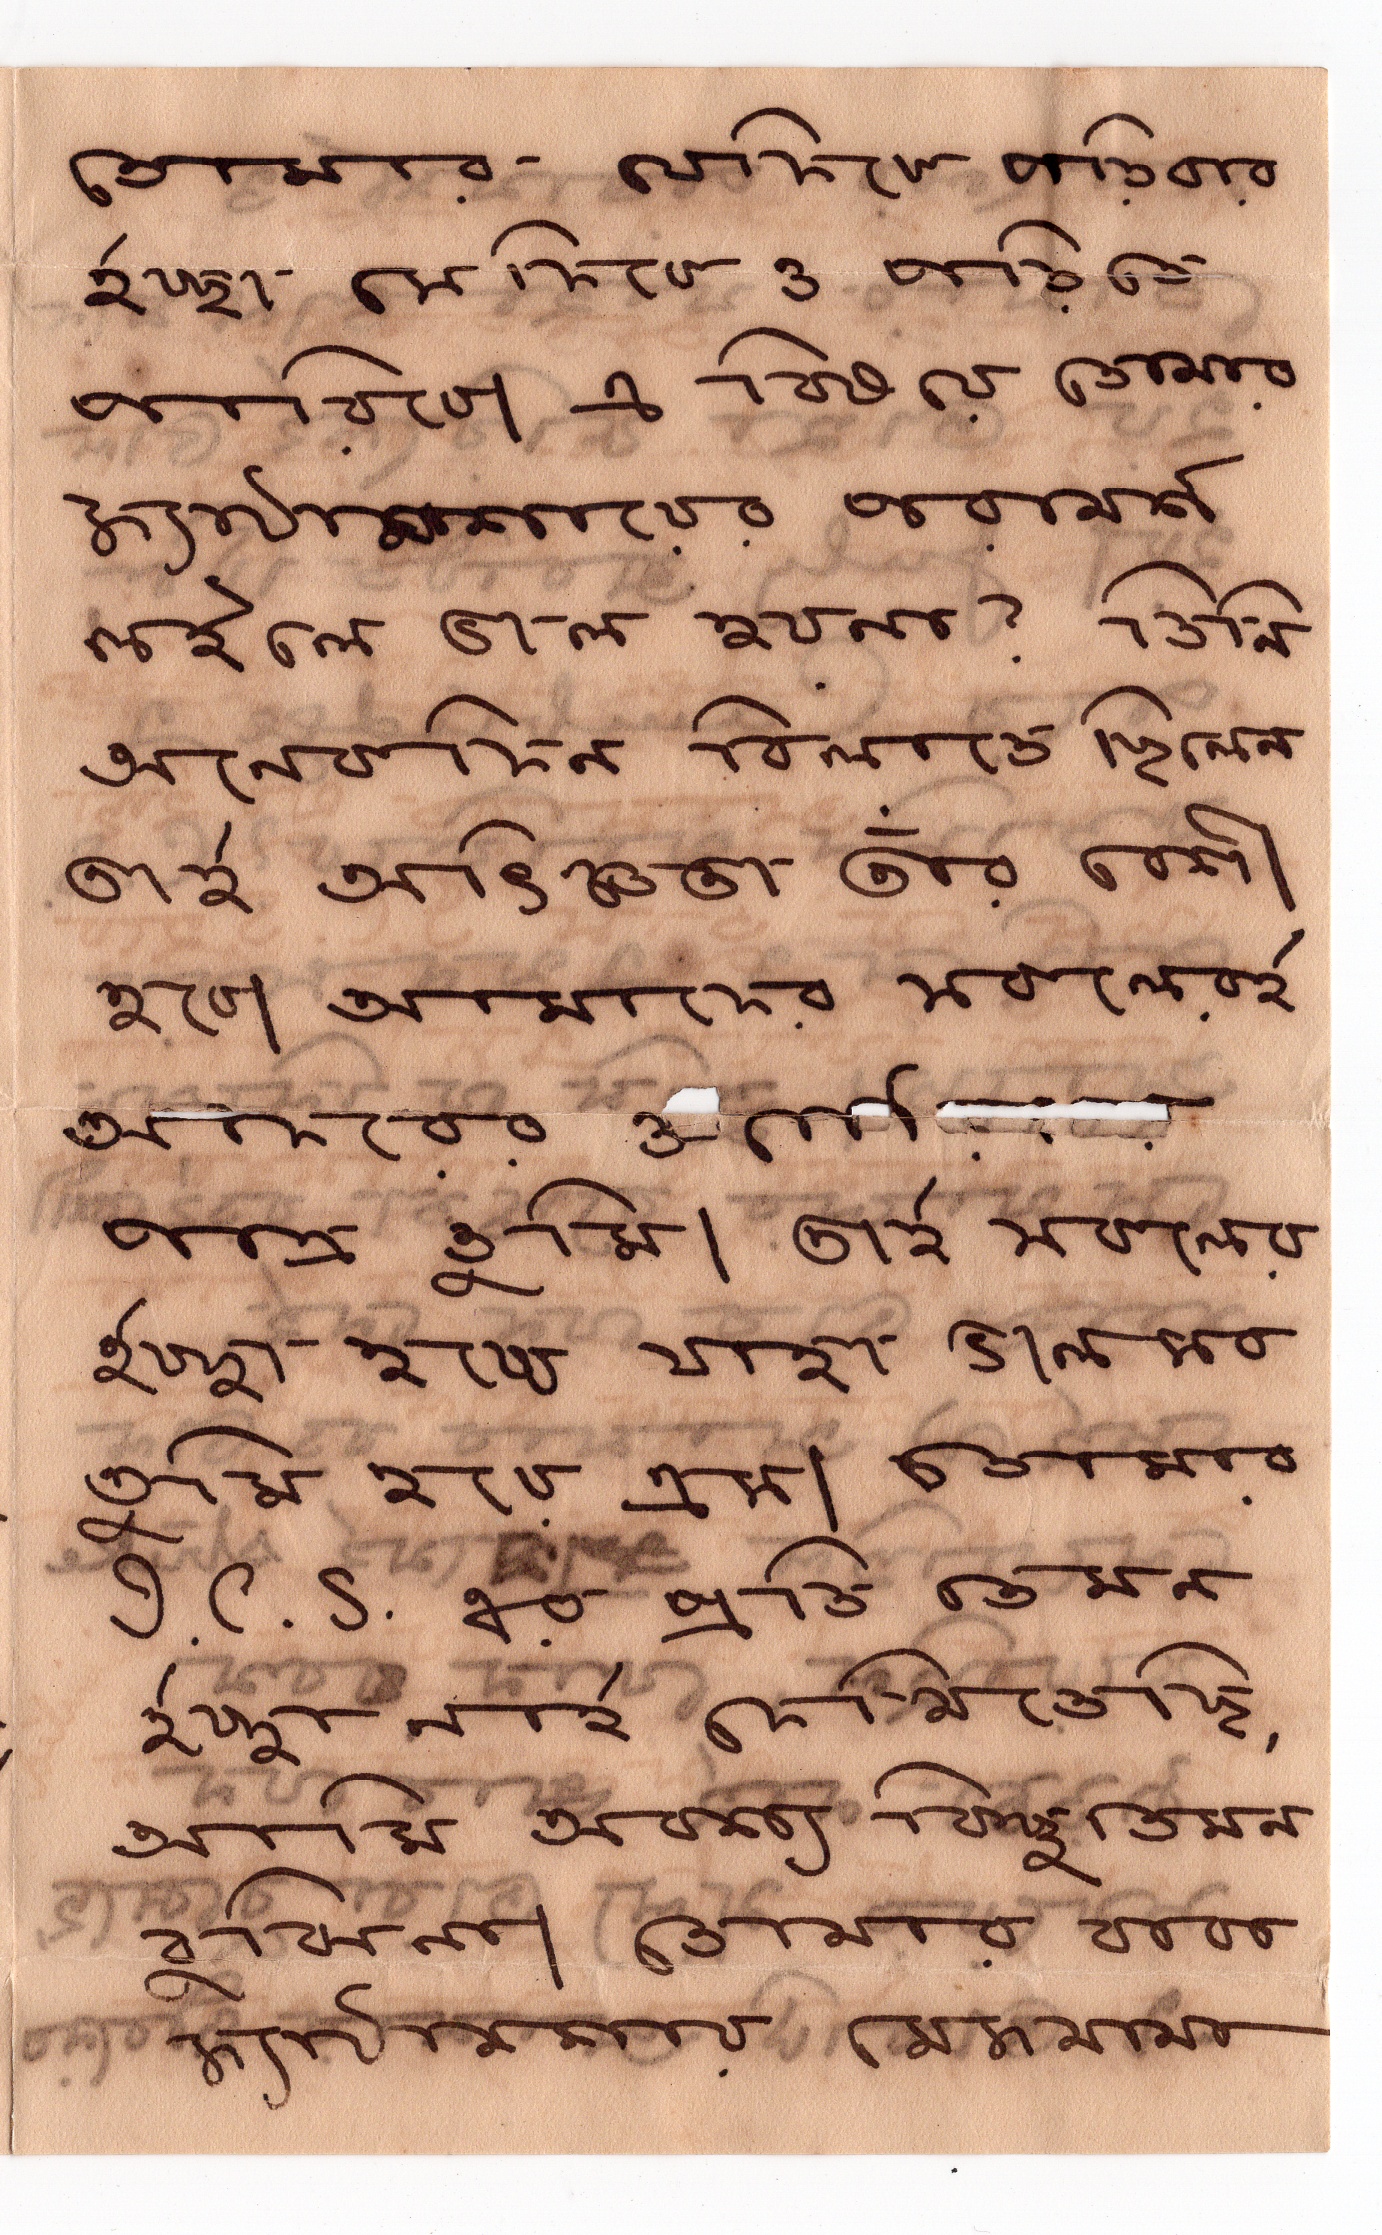 তোমার যেদিকে পড়িবার
ইচ্ছা সেদিকে ও পড়িতে
পারিবে। এ বিষয়ে তোমার
পরামর্শ
লইলে ভাল হয়না? তিনি
অনেকদিন বিলাতে ছিলেন
তাই অভিজ্ঞতা তাঁর বেশী
হবে। আমাদের সকলেরই
আদরের ও
পাত্র তুমি। তাই সকলের
ইচ্ছা হচ্ছে যাহা ভাল সব
তুমি হয়ে এস। তোমার
I. C. S. এর প্রতি তেমন
ইচ্ছা নাই দেখিতেছি,
আমি অবশ্য কিছু তেমন
বুঝিনা। তোমার বাবা
সেজমামা